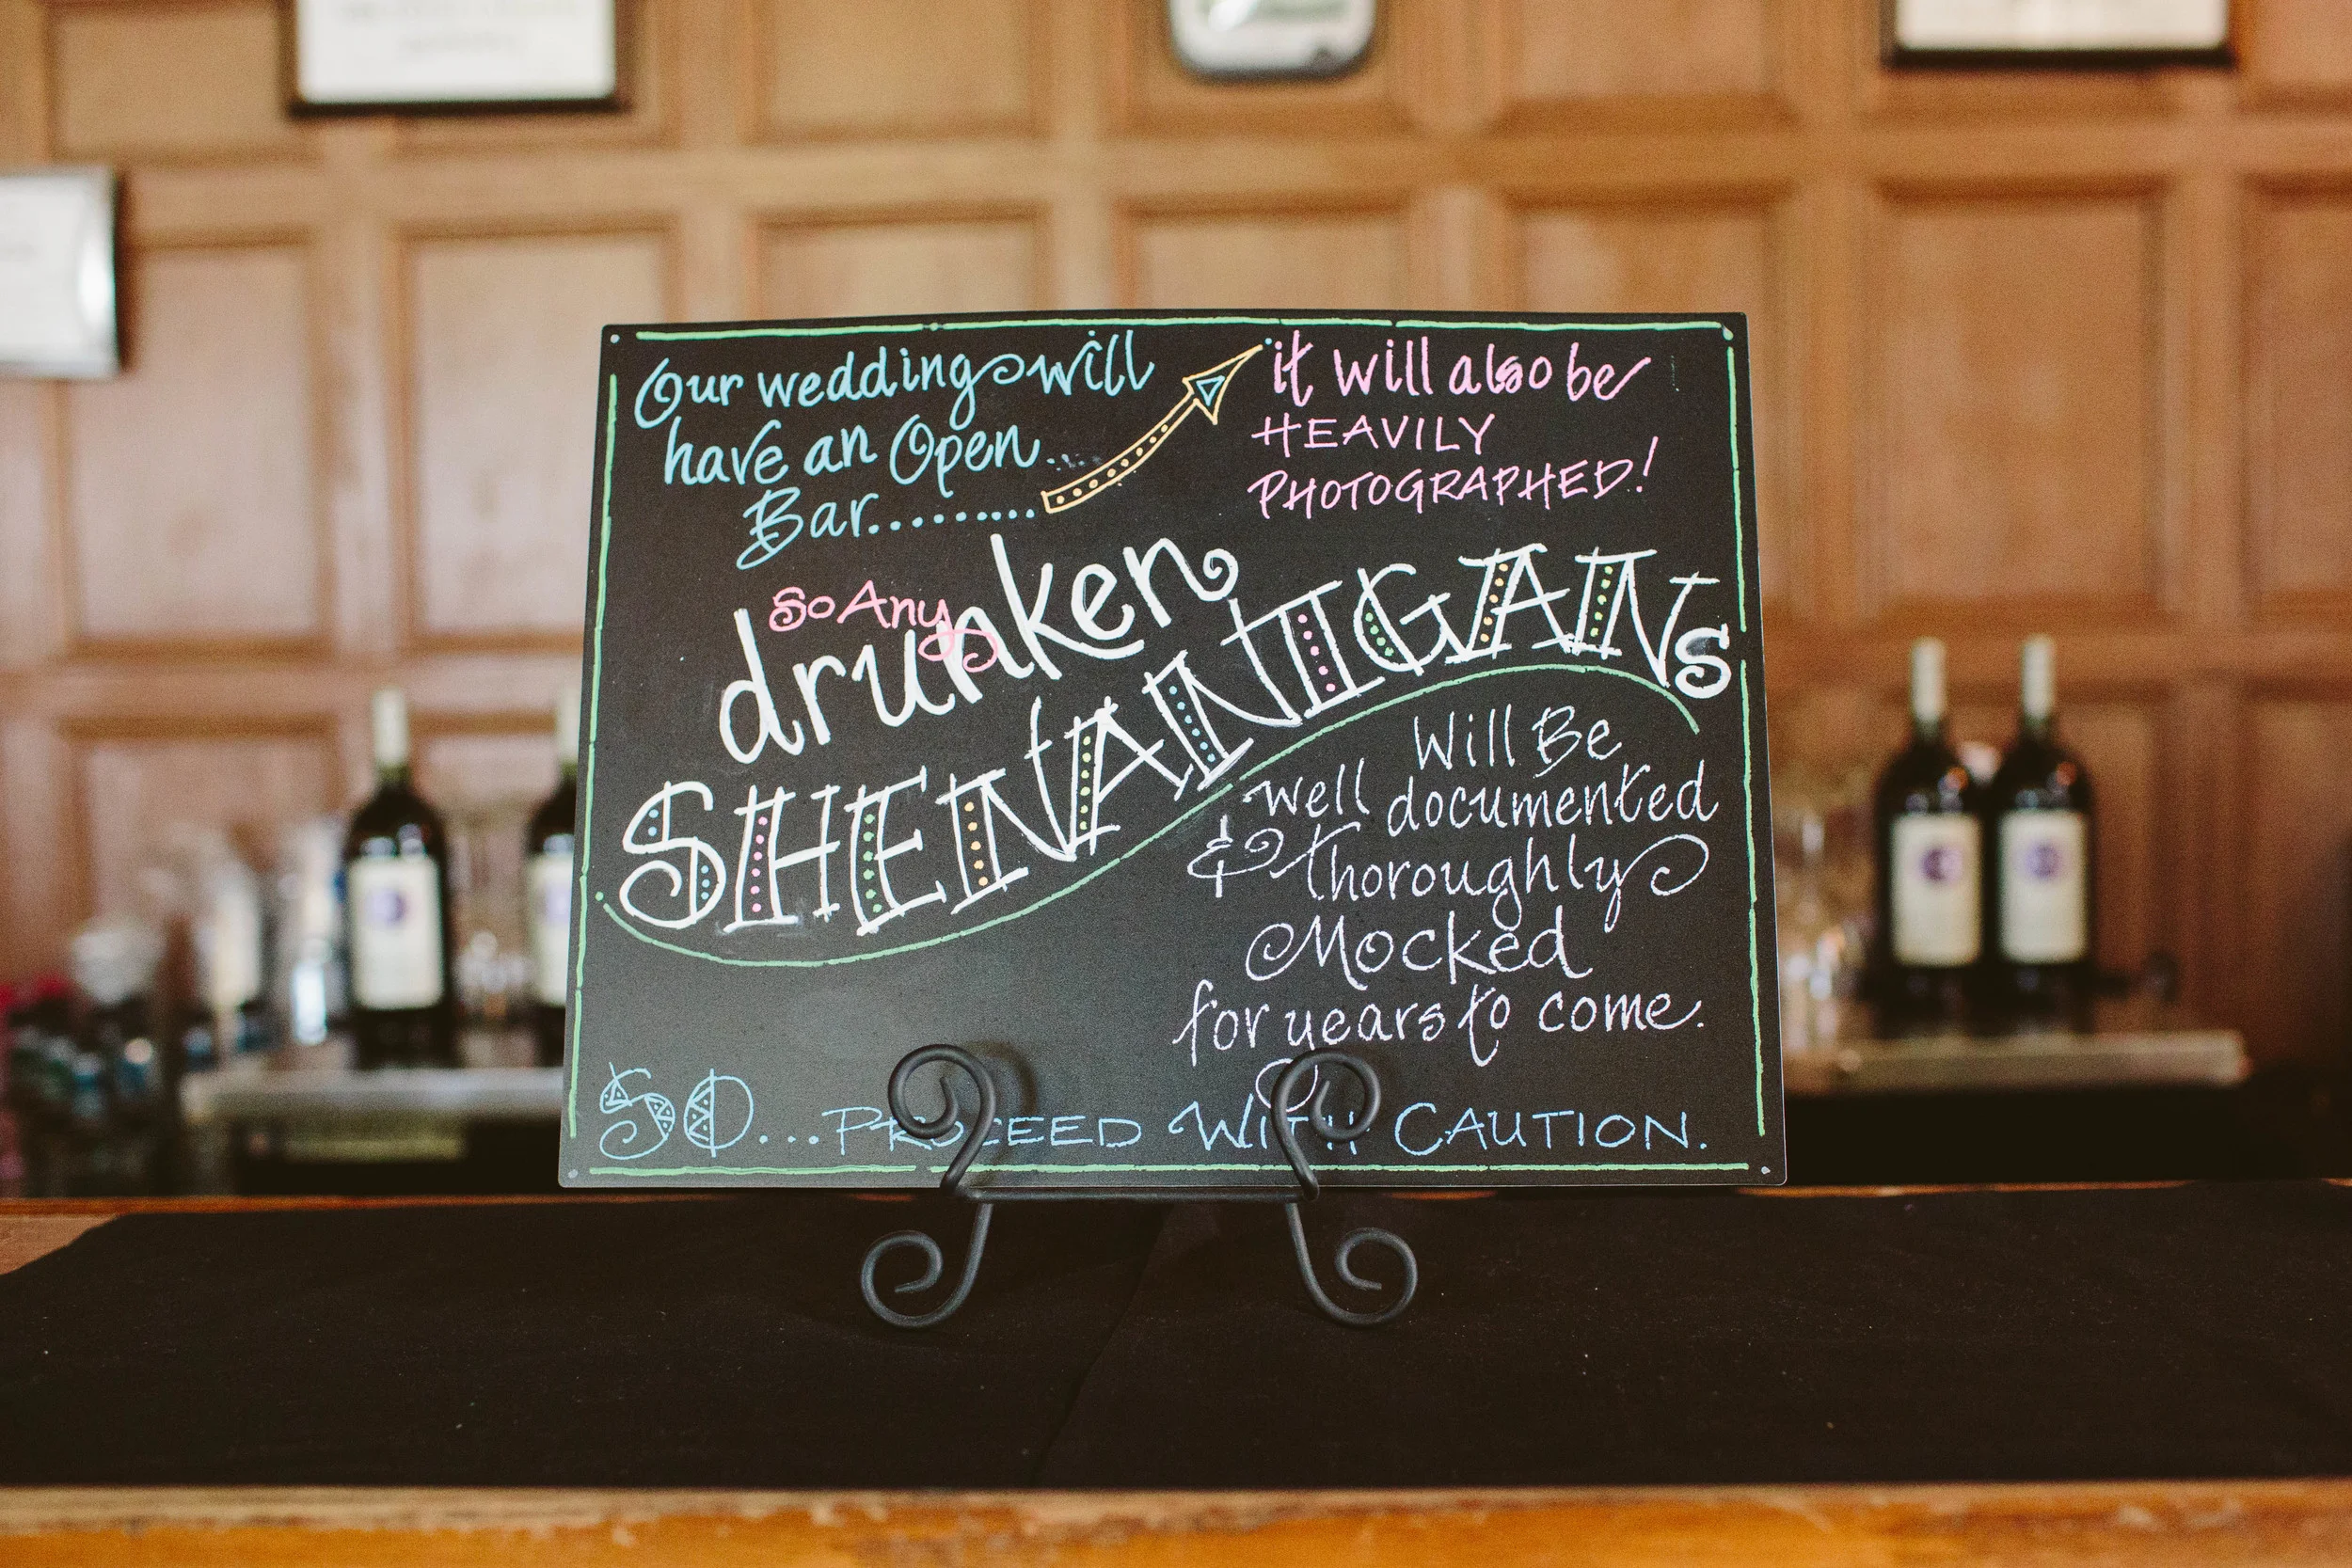 Our wedding will
have an Open...
Bar.........
it will also be
HEAVILY
PHOTOGRAPHED!
So Any
drunken
SHENANIGANs
Will Be
well documented
& thoroughly
Mocked
for years to come.
SO... PROCEED WITH CAUTION.